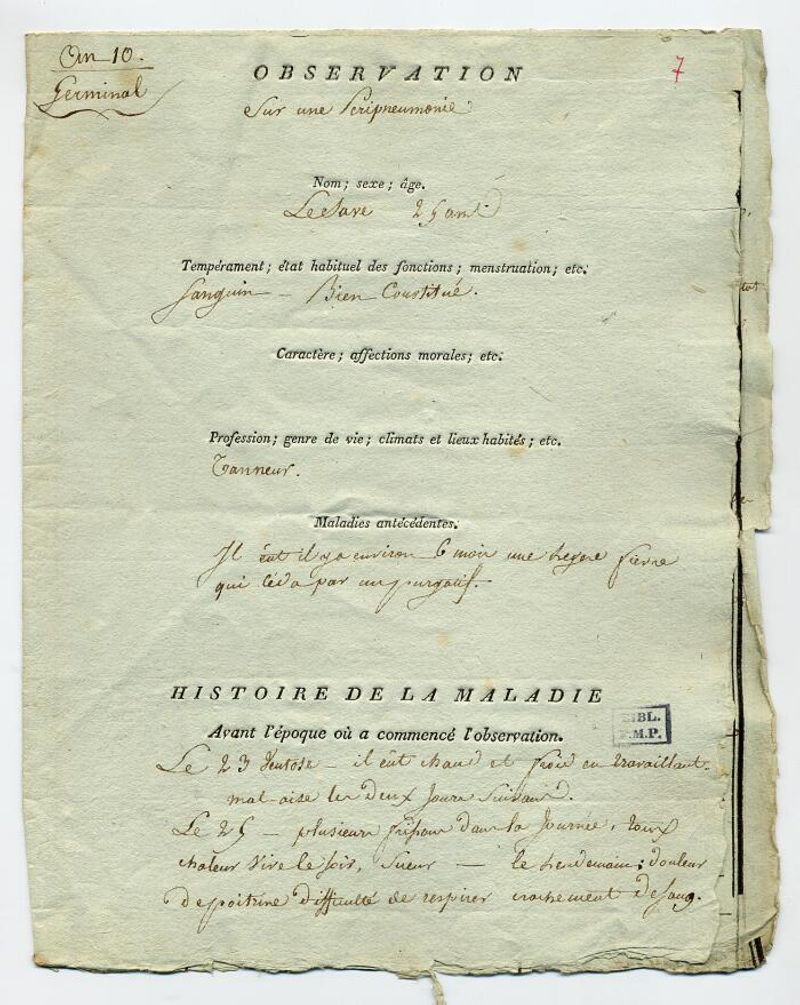 An 10.
Germinal
7
OBSERVATION
Sur une Peripneumonie
Nom; sexe; âge.
25 ans
Tempérament; état habituel des fonctions; menstruation; etc.
Sanguin — Bien Constitué.
Caractère; affections morales; etc.
Profession; genre de vie; climats et lieux habités; etc.
Tanneur.
Maladies antécédentes.
Il eut il y a environ 6 mois une legere fievre
qui céda par un purgatif.
HISTOIRE DE LA MALADIE
BIBL.
F.M.P.
Avant l'époque où a commencé l'observation.
Le 23 Ventose — il eût chaud et froid en travaillant.
mal-aise les deux Jours Suivans.
Le 25 — plusieurs frissons dans la Journée, toux
chaleur vive le soir, sueur — le lendemain; douleur
de poitrine difficulté de respirer crachement de sang.